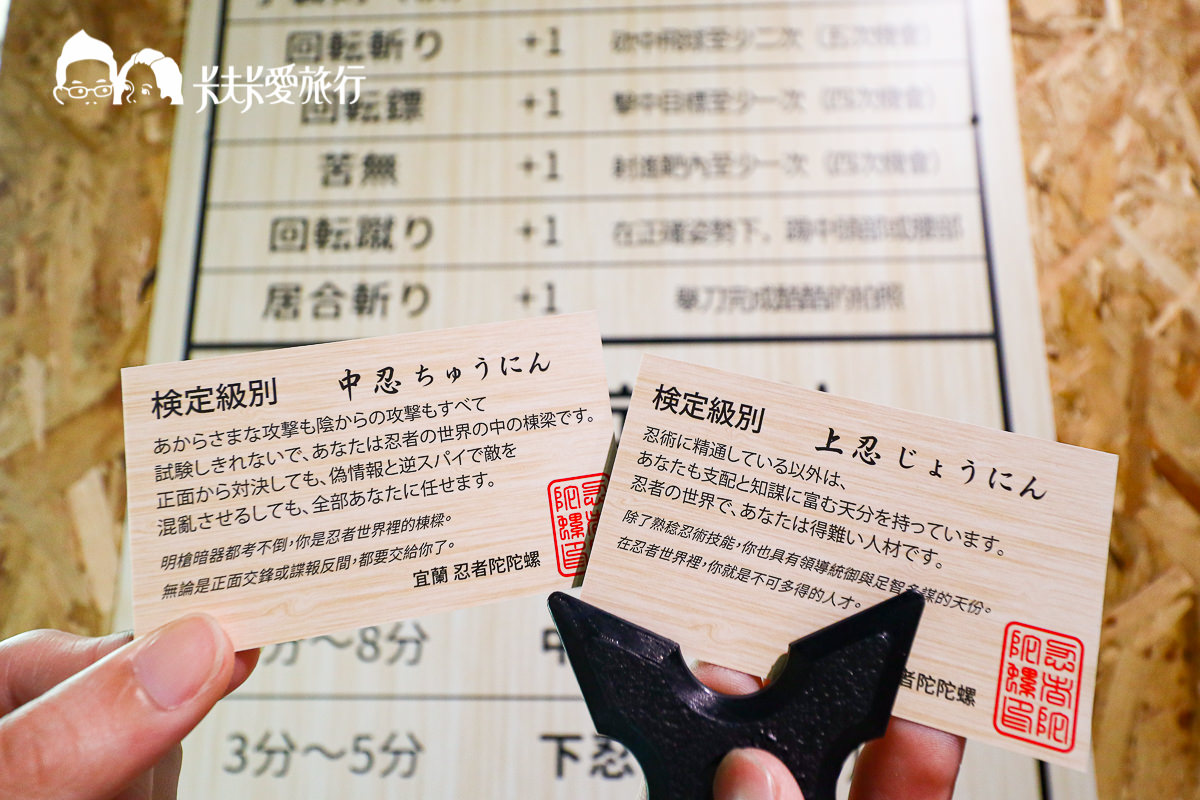 卡夫卡愛旅行
回転斬り +1 欲中飛球至少二次（五次機會）
回転鏢 +1 擊中目標至少一次（四次機會）
苦無 +1 射進靶內至少一次（四次機會）
回転蹴り +1 在正確姿勢下，踢中頭部或腰部
居合斬り +1 舉刀完成酷酷的拍照
検定級別 中忍ちゅうにん
あからさまな攻撃も陰からの攻撃もすべて
試験しきれないで、あなたは忍者の世界の中の棟梁です。
正面から対決しても、偽情報と逆スパイで敵を
混亂させるしても、全部あなたに任せます。
明槍暗器都考不倒，你是忍者世界裡的棟樑。
無論是正面交鋒或諜報反間，都要交給你了。
宜蘭 忍者陀陀螺
検定級別 上忍じょうにん
忍術に精通している以外は、
あなたも支配と知謀に富む天分を持っています。
忍者の世界で、あなたは得難い人材です。
除了熟稔忍術技能，你也具有領導統御與足智多謀的天份。
在忍者世界裡，你就是不可多得的人才。
者陀陀螺
忍者陀
陀螺印
分～8分 中
3分～5分 下忍